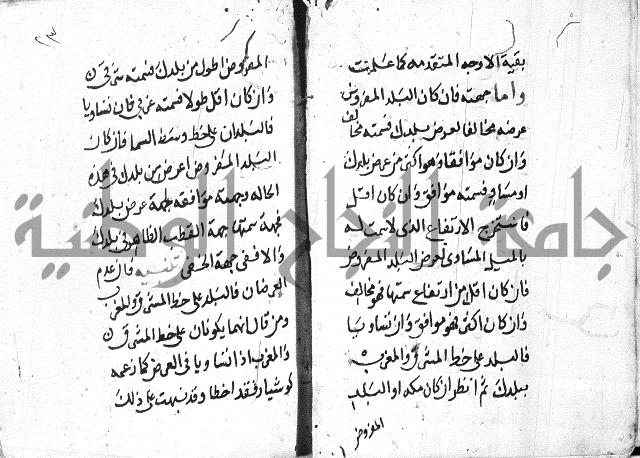 بقية الاوجه المتقدمه كما علمت
واما جهته فان كان البلد المفروض
عرضه مخالفا لعرض بلدك فسمته مخالف
وان كان موافقا وهو اكثر من عرض بلدك
او مساو فسمته موافق وان كان اقل
فاستخرج الارتفاع الذي لا سمت له
بالميل المساوي لعرض البلد المفروض
فان كان اقل من ارتفاع سمتها فهو مخالف
وان كان اكثر فهو موافق وان تساويا
فالبلد على خط المشرق والمغرب
ببلدك ثم انظر ان كان مكه او البلد
المفروض
المفروض اطول من بلدك فسمته شرقي
وان كان اقل طولا فسمته غربي فان تساويا
فالبلدان على خط وسط السما فان كان
البلد المفروض اعرض من بلدك في هذه
الحاله وجهته موافقه جهة عرض بلدك
فجهة سمتها جهة القطب الظاهر في بلدك
والا ففي جهة الخفي تنبيه فان عدم
العرضان فالبلد على خط المشرق والمغرب
ومن قال انهما يكونان على خط المشرق
والمغرب اذا تساويا في العرض كما زعمه
كوشيار فقد اخطا وقد نبهت على ذلك
جامعة النجاح الوطنية